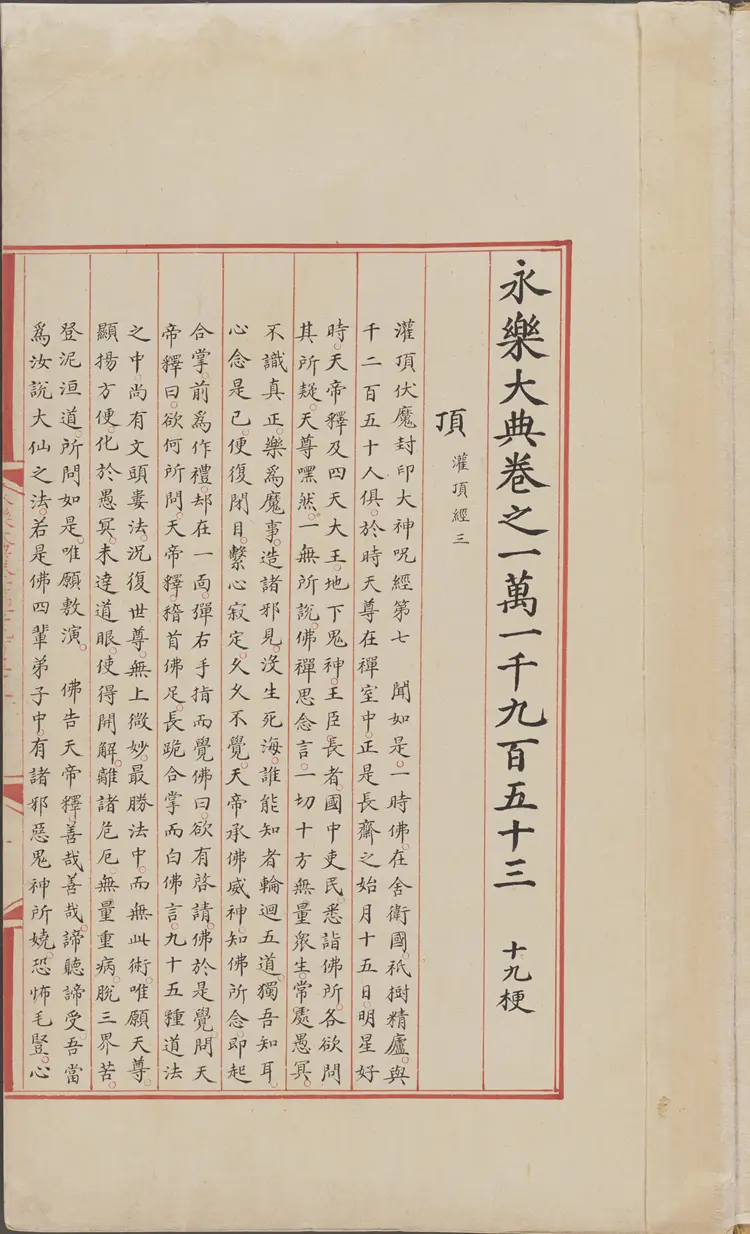 永樂大典卷之一萬一千九百五十三 十九梗
頂 灌頂經三
灌頂伏魔封印大神呪經第七 聞如是。一時佛。在舍衛國。祇樹精廬。與
千二百五十人俱。於時天尊在禪室中。正是長齋之始月十五日。明星好
時。天帝釋及四天大王。地下鬼神。王臣。長者。國中吏民。悉詣佛所。各欲問
其所疑。天尊嘿然。一無所說。佛禪思念言。一切十方無量衆生。常處愚冥。
不識真正。樂爲魔事。造諸邪見。沒生死海。誰能知者輪迴五道。獨吾知耳。
心念是已。便復閉目。繫心寂定。久久不覺。天帝承佛威神。知佛所念。即起
合掌。前爲作禮。却在一面。彈右手指而覺佛曰。欲有啓請。佛於是覺問天
帝釋曰。欲何所問。天帝釋。稽首佛足。長跪合掌而白佛言。九十五種道法
之中。尚有文頭婁法。況復世尊。無上微妙。最勝法中。而無此術。唯願天尊。
顯揚方便。化於愚冥。未達道眼。使得開解。離諸危厄。無量重病。脫三界苦。
登泥洹道。所問如是。唯願敷演。 佛告天帝釋。善哉善哉。諦聽諦受。吾當
爲汝說大仙之法。若是佛四輩弟子中。有諸邪惡鬼神所嬈。恐怖毛豎。心